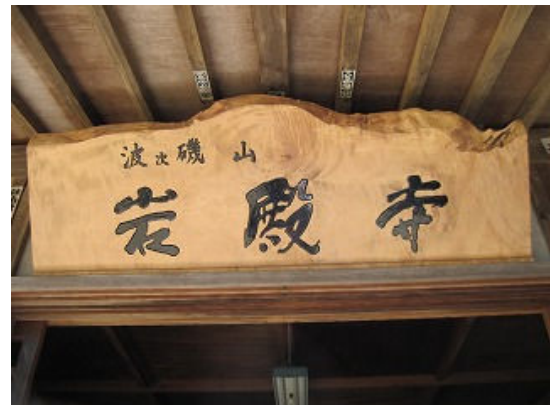 波次磯山
岩殿寺